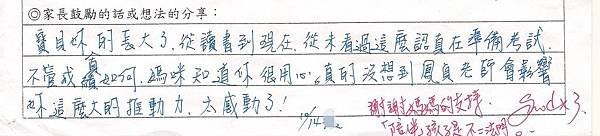 ◎家長鼓勵的話或想法的分享：
寶貝妳的長大了，從讀書到現在，從未看過這麼認真在準備考試，
不管成績如何，媽咪知道你很用心。真的沒想到鳳貞老師會影響
妳這麼大的推動力，太感動了！
謝謝媽媽的支持，
「陪伴」孩子是不二法門。
Good x 3